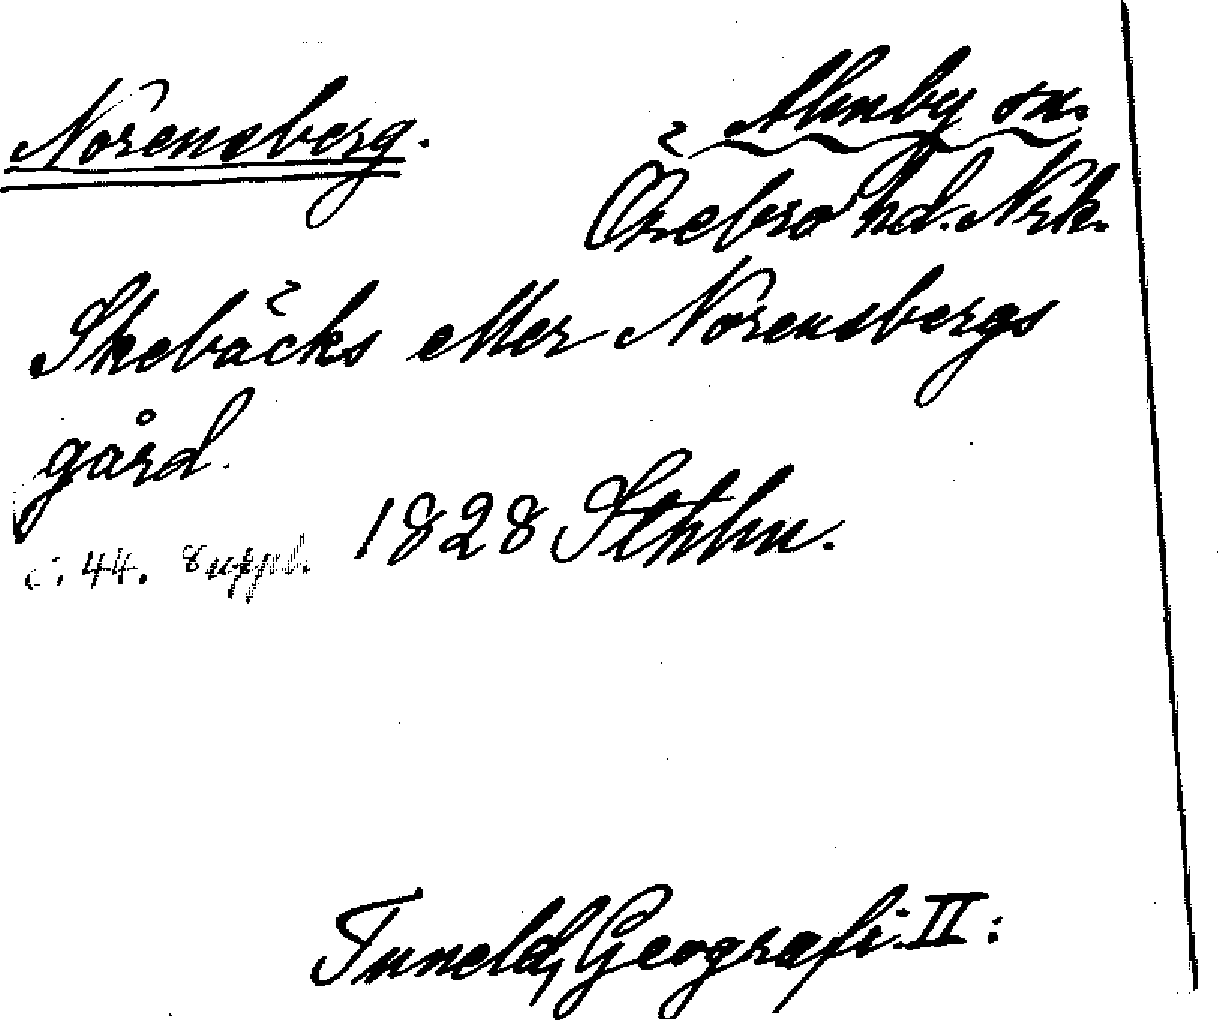 Norensberg. Almby sn.
Örebro hd. Nrk.
Skebäcks eller Norensbergs
gård.
1828 Sthlm.
c. 44. Suppl.
Tuneld, Geografi II: